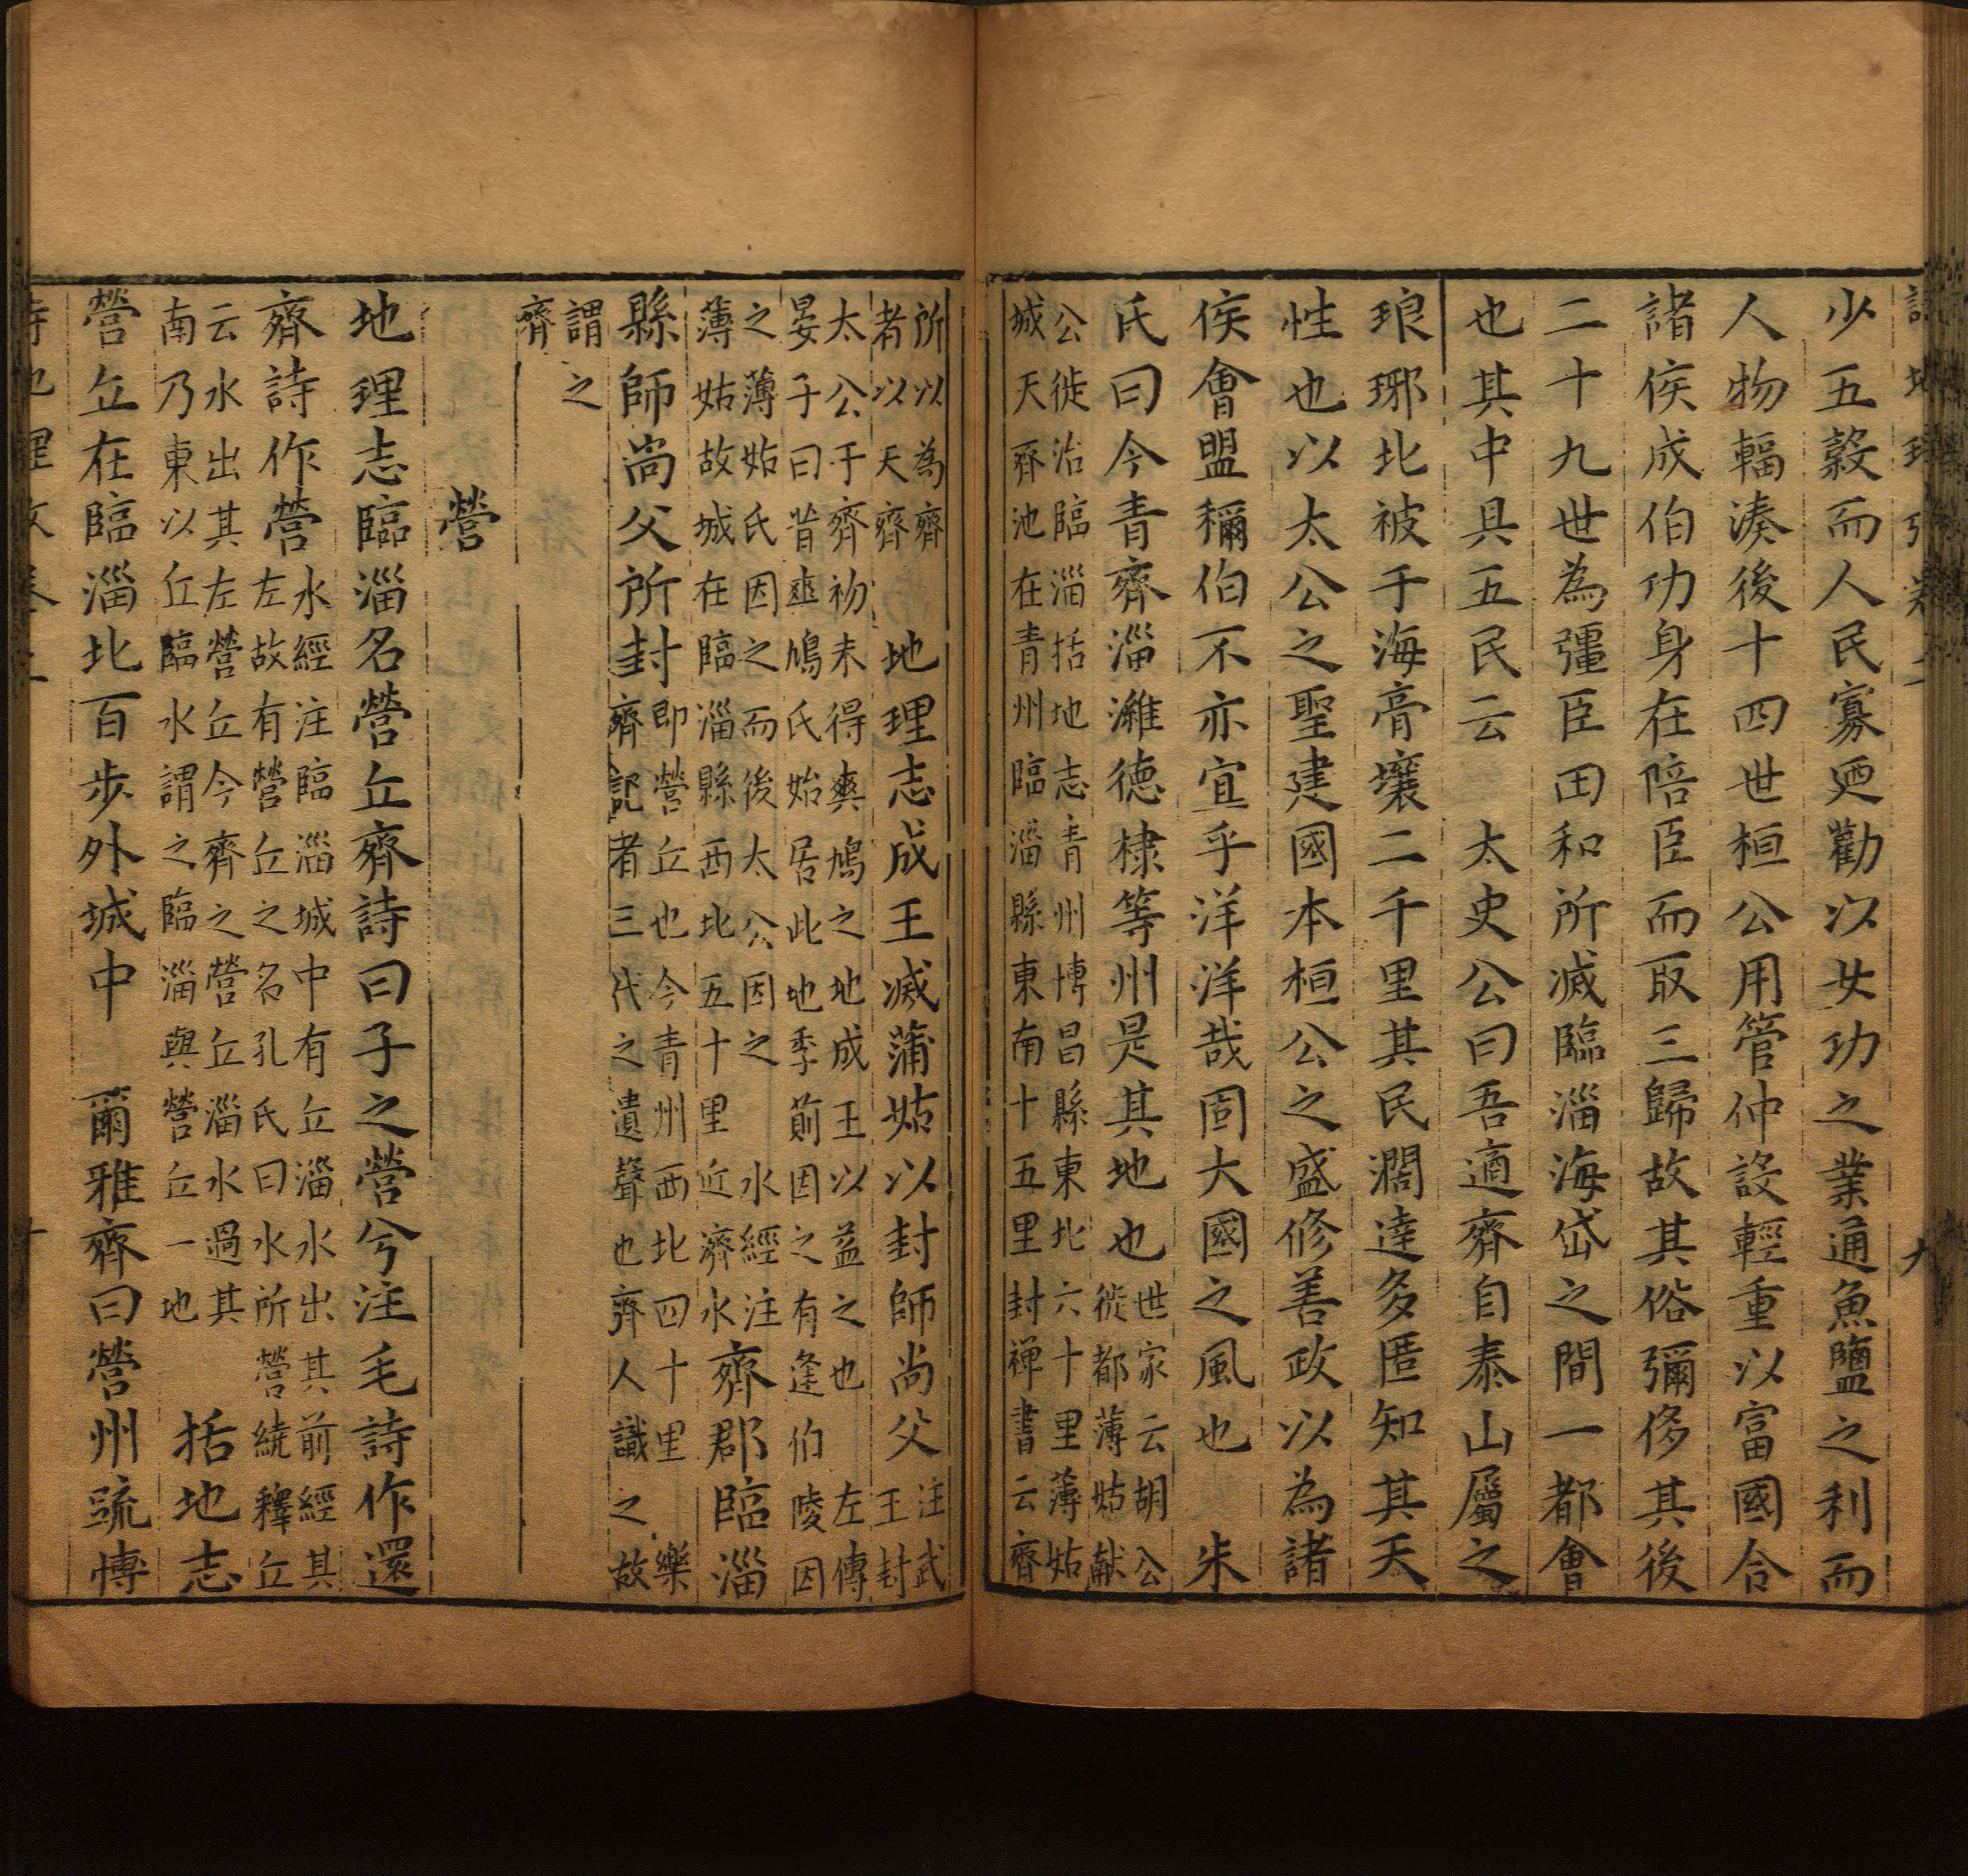 少五穀而人民寡廼勸以女功之業通魚鹽之利而
人物輻湊後十四世桓公用管仲設輕重以富國合
諸侯成伯功身在陪臣而取三歸故其俗彌侈其後
二十九世為彊臣田和所滅臨淄海岱之間一都會
也其中具五民云　太史公曰吾適齊自泰山屬之
琅琊北被于海膏壤二千里其民濶達多匿知其天
性也以太公之聖建國本桓公之盛修善政以為諸
侯會盟稱伯不亦宜乎洋洋哉固大國之風也　朱
氏曰今青齊淄濰德棣等州是其地也世家云胡公
徙都薄姑献
公徙治臨淄括地志青州博昌縣東北六十里薄姑
城天齊池在青州臨淄縣東南十五里封禪書云齊
所以為齊
者以天齊
地理志成王滅蒲姑以封師尚父注武
王封
太公于齊初未得爽鳩之地成王以益之也　左傳
晏子曰昔爽鳩氏始居此地季萴因之有逢伯陵因
之薄姑氏因之而後太公因之　水經注
薄姑故城在臨淄縣西北五十里近濟水
齊郡臨淄
縣師尚父所封即營丘也今青州西北四十里　樂
齊記者三代之遺聲也齊人識之故
謂之
齊
營
地理志臨淄名營丘齊詩曰子之營兮注毛詩作還
齊詩作營水經注臨淄城中有丘淄水出其前經其
左故有營丘之名孔氏曰水所營繞釋丘
云水出其左營丘今齊之營丘淄水過其
南乃東以丘臨水謂之臨淄與營丘一地
括地志
營丘在臨淄北百步外城中　爾雅齊曰營州䟽博